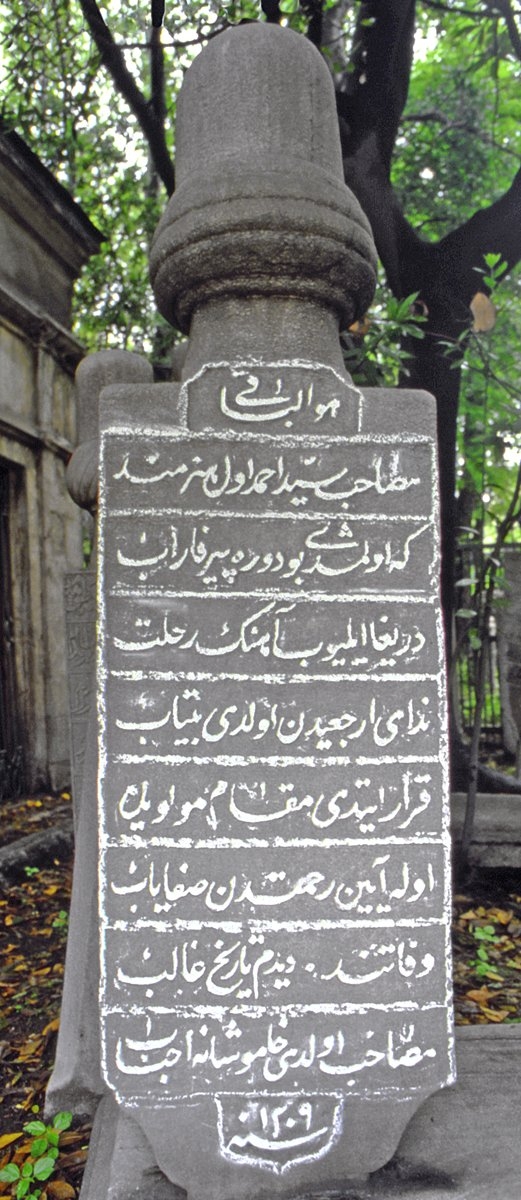 هو الباقی
مصاحب سید احمد اول هنرمند
که اولمدی بو دوره پیر فاراب
دریغا ایلیوب آهنك رحلت
ندای ارجعیدن اولدی بیتاب
قرار ایتدی مقام مولویده
اوله آیین رحمتدن صفایاب
وفاتنده دیدم تاریخ غالب
مصاحب اولدی خاموشانه احباب
سنه ١٢٠٩